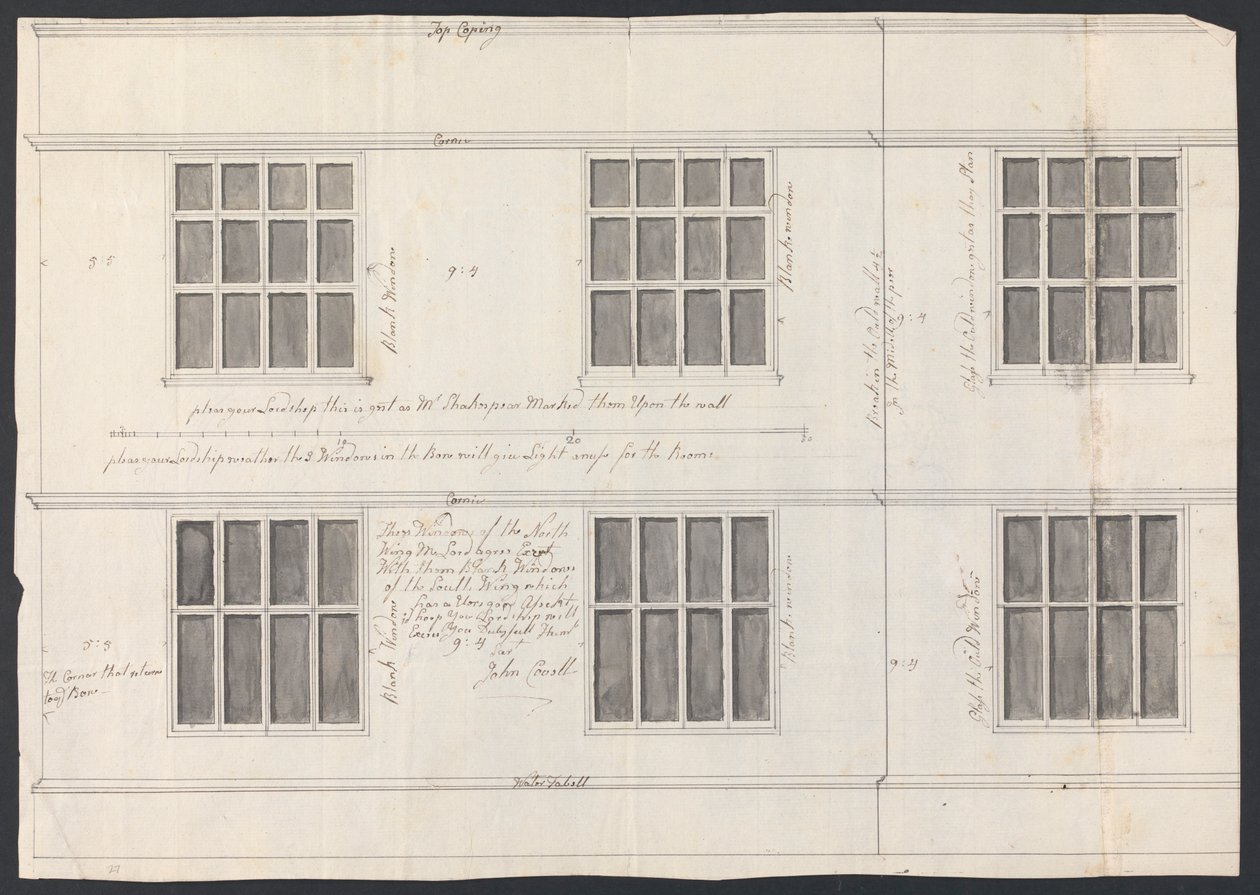 Top Coping
Cornic
5:5
Blank Window
9:4
Blank window
Break in the Ould wall 4½
in the Midell of the peer
9:4
Glass the Ould window as thay Plan
pleas your Lordship this is gest as Mr Shakespear Marked them Upon the wall
10
20
30
pleas your Lordship weather the 3 Windows in the Bow will giv Light enuf for the Room
Cornic
Thes Windows of the North
Wing Me Lord agree Exect
With them Blank Windows
of the South Wing which
has a Apeckt
I hoop You Lordship will
Your Dutyfull Humb
9:4
Sart
John Covell
5:5
The Cornar that return
Bow
Blank Window
Blank window
9:4
Glass the Ould Window
Water Tabell
27